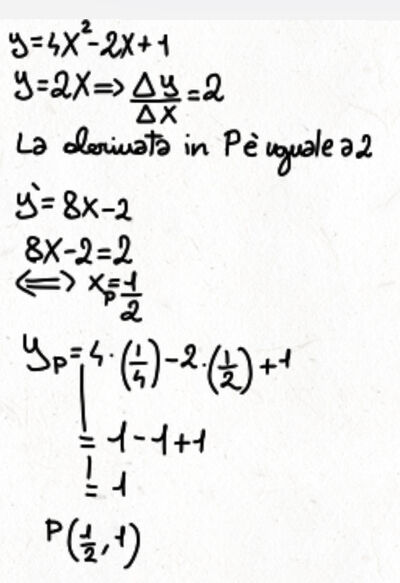 y=4x²-2x+1
y=2x=>Δy/Δx=2
La derivata in P è uguale a 2
y'=8x-2
8x-2=2
<=> xₚ=1/2
yₚ=4·(1/4)-2·(1/2)+1
=1-1+1
=1
P(1/2,1)